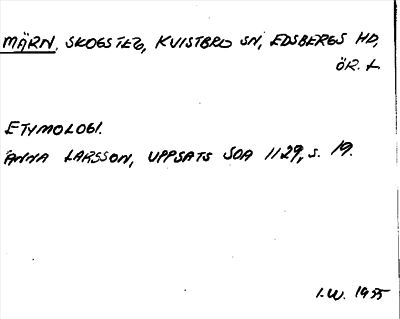 MÄRN, SKOGSTEG, KVISTBRO SN, EDSBERGS HD,
ÖR. L
ETYMOLOGI.
ANNA LARSSON, UPPSATS SOA 1129, s. 19.
I.W. 1955